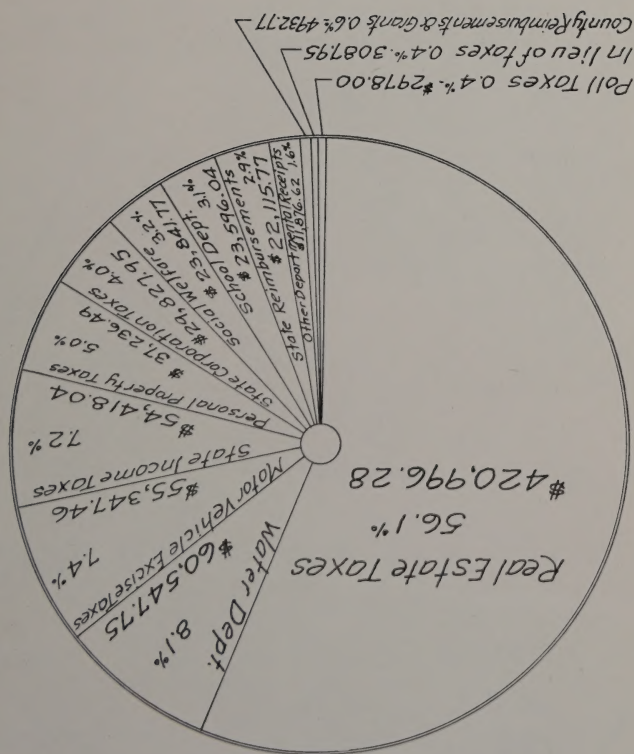 Water Dept.
8.1%
$60,547.75
Real Estate Taxes
56.1%
$420,996.28
Motor Vehicle Excise Taxes
7.4%
$55,347.46
State Income Taxes
7.2%
$54,418.04
Personal Property Taxes
5.0%
$37,236.49
State Corporation Taxes
4.0%
$29,827.95
Social Welfare 3.2%
$23,841.77
School Dept. 3.1%
$23,596.04
State Reimbursements 2.9%
$22,115.77
Other Departmental Receipts
$11,876.62 1.6%
Poll Taxes 0.4%-$2978.00
In lieu of taxes 0.4%-3087.95
County Reimbursements & Grants 0.6%-4932.77